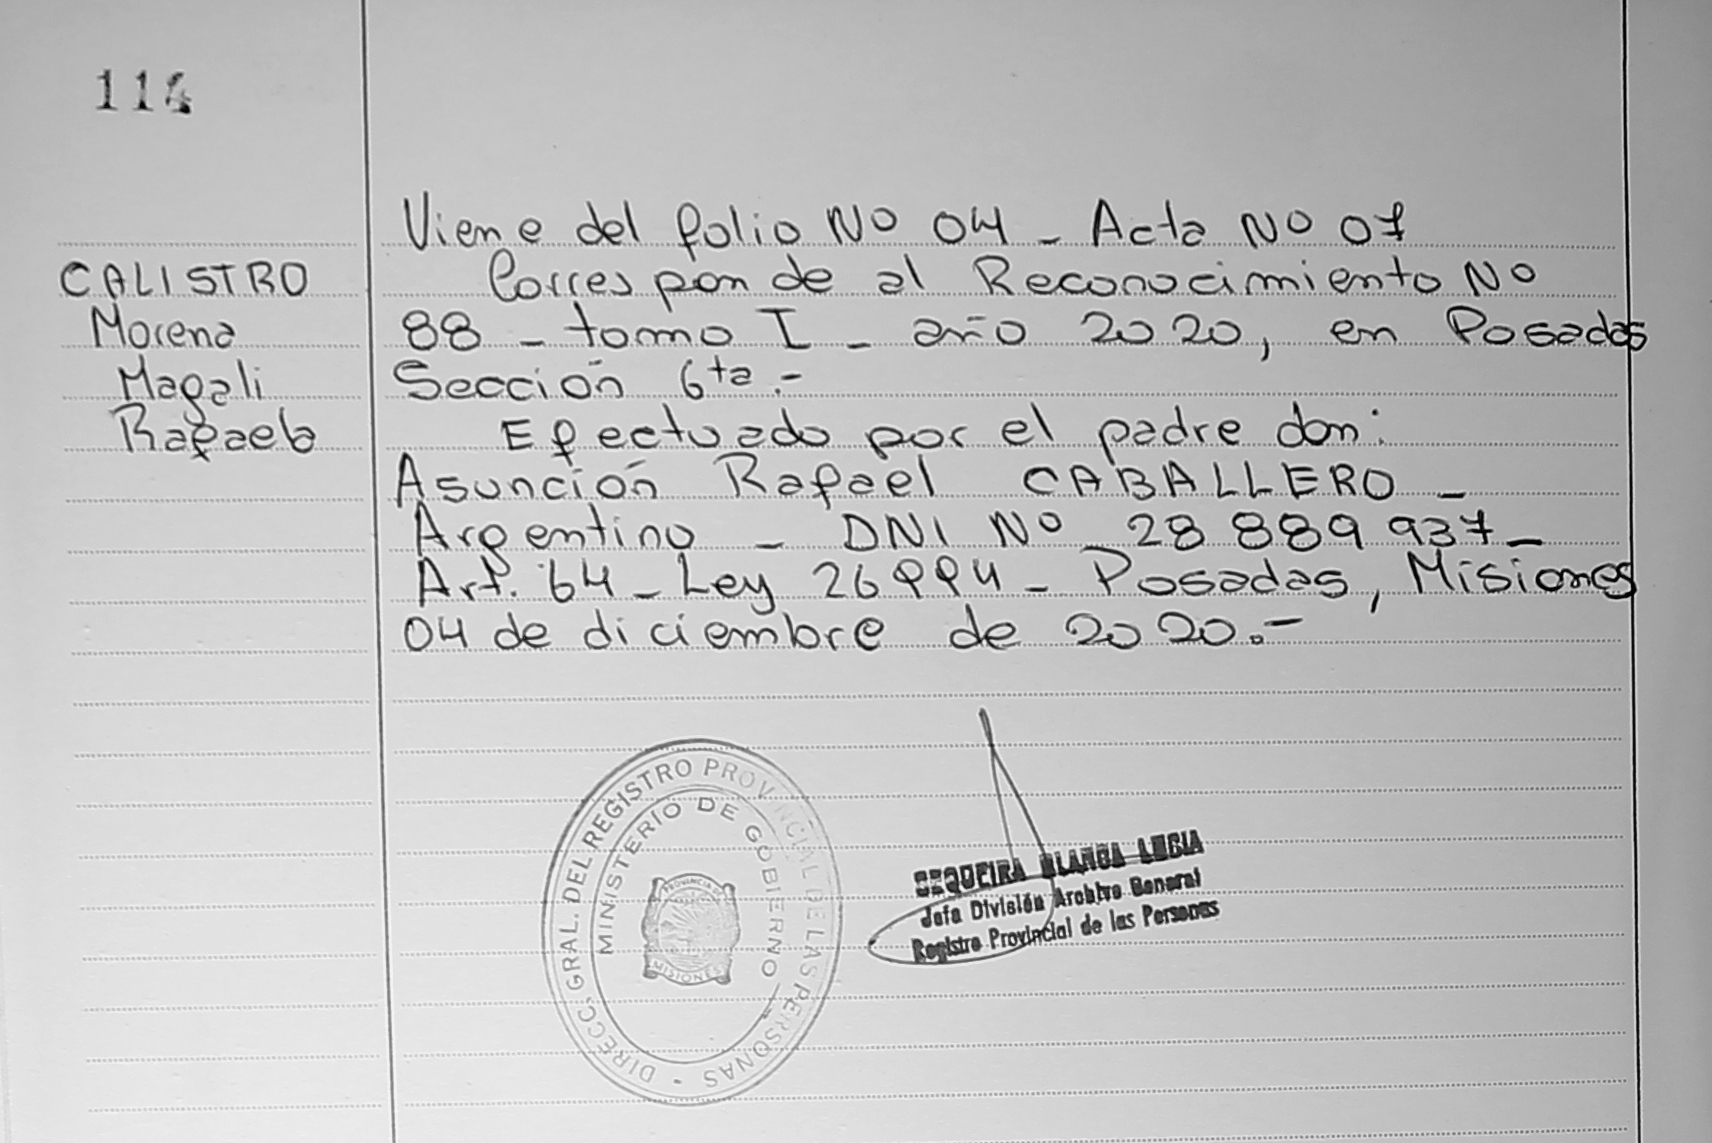 114
Viene del folio Nº 04 - Acta Nº 07
CALISTRO
Morena
Magali
Rafaela
Corresponde al Reconocimiento Nº
88 - tomo I - año 2020, en Posadas
Sección 6ta.-
Efectuado por el padre don:
Asunción Rafael CABALLERO -
Argentino - DNI Nº 28 889 937 -
Art. 64 - Ley 26994 - Posadas, Misiones
04 de diciembre de 2020.-
DIRECC. GRAL. DEL REGISTRO PROVINCIAL DE LAS PERSONAS
MINISTERIO DE GOBIERNO
PROVINCIA DE
MISIONES
SEQUEIRA BLANCA LUCIA
Jefa División Archivo General
Registro Provincial de las Personas